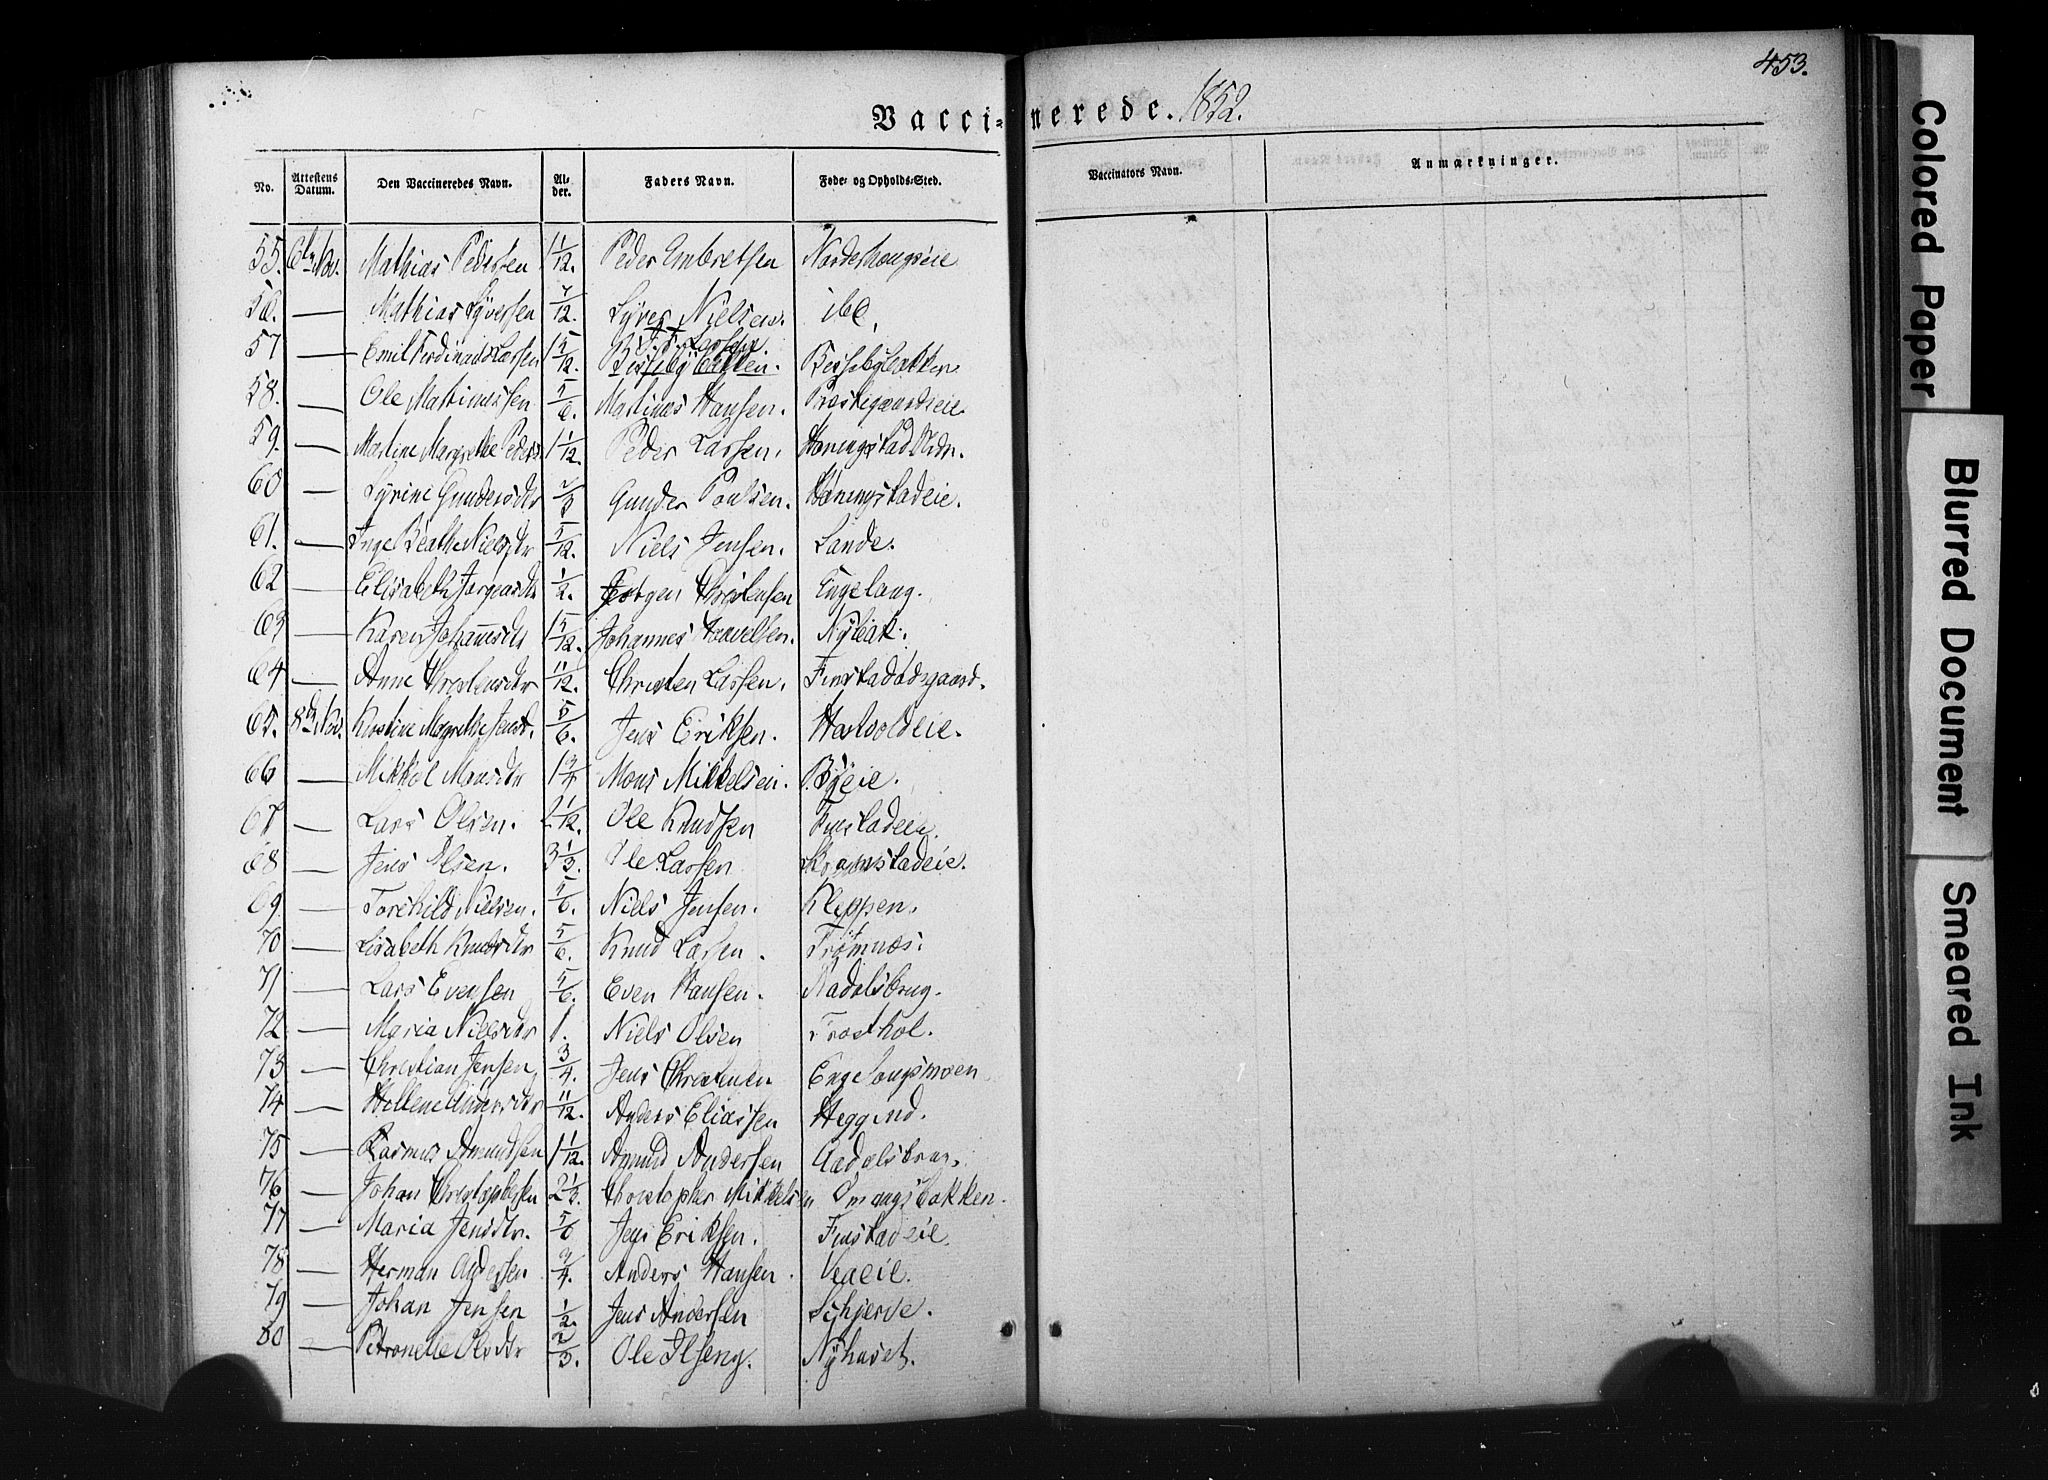 453.
Vaccinerede. 1852.
No. Attestens Datum. Den Vaccineredes Navn. Alder. Faders Navn. Føde- og Opholds-Sted. Vaccinators Navn. Anmærkninger.
55. 6te Nov. Mathias Pedersen 1 1/12. Peder Embretsen Norderhougseie
56. — Mathias Syversen 7/12. Syver Nielsen. ibd.
57 — Emil Ferdinand Larsen 1 5/12. Larsen Berseby bakken. Bersebybakken
58. — Ole Martinussen 5/6. Martinus Hansen. Præstegaardseie
59. — Martine Margrethe Peders 1 1/12. Peder Larsen. Horningstad Nrdr.
60 — Syrine Gundersdtr 2/3 Gunder Poulsen. Horningstadeie.
61. — Inge Beathe Nielsdtr 5/12. Niels Jensen. Lande.
62 — Elisabeth Jørgensdtr 1/2. Jørgen Christensen Engelaug.
63 — Karen Johannesdtr 1 5/12. Johannes Haavelsen. Nybak.
64 — Anne Christensdtr 11/12. Christen Larsen. Finstad Ødegaard.
65. 8de Nov. Kirstine Magrethe Jensd. 5/6. Jens Eriksen. Horsvoldeie.
66 — Mikkel Monsdtr 1 3/4 Mons Mikkelsen. Byeie.
67 — Lars Olsen. 2 1/12. Ole Knudsen Finstadeie.
68 — Jens Olsen. 3 1/3. Ole Larsen Kromstadeie.
69. — Torchild Nielsen. 5/6. Niels Jensen. Kleppen.
70 — Lisabeth Knudsdtr 5/6. Knud Larsen. Trømnæs.
71 — Lars Evensen 5/6. Even Hansen. Aadalsbrug.
72 — Maria Nielsdtr 1. Niels Olsen Frosthol.
73 — Christian Jensen 3/4. Jens Christensen Engelaugsmoen
74 — Hellene Andersdtr 11/12. Anders Eliassen Heggind.
75 — Rasmus Amundsen 1 1/12. Amund Andersen Aadalsbrug.
76 — Johan Christophersen 2 1/3. Christopher Mikkelsen Omangsbakken.
77 — Maria Jensdtr. 5/6 Jens Eriksen. Finstadeie.
78 — Herman Andersen 3/4. Anders Hansen. Veaeie.
79 — Johan Jensen 1/2. Jens Andersen Schjerve.
80 — Petronelle Olsdtr 2/3. Ole Ilseng. Nyhuset.
Colored Paper
Blurred Document
Smeared Ink